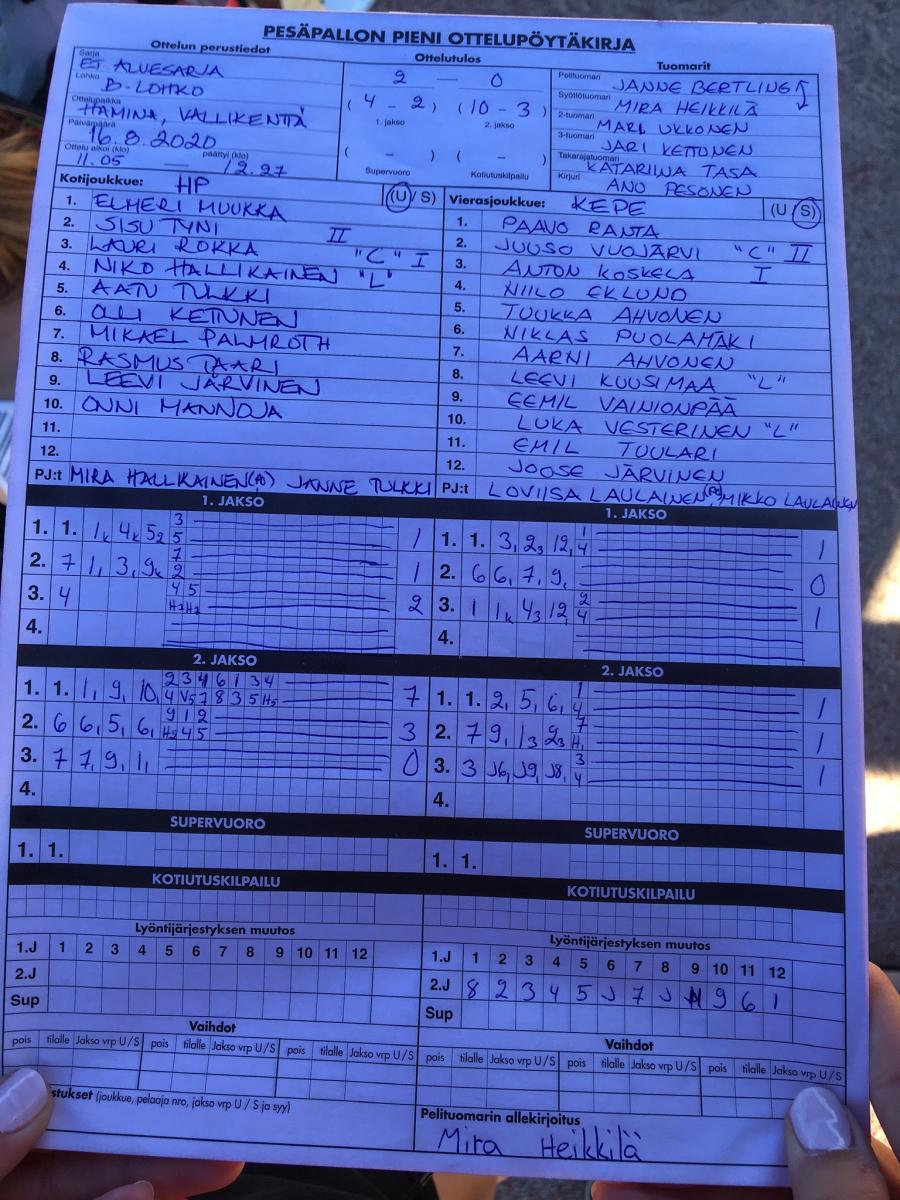 PESÄPALLON PIENI OTTELUPÖYTÄKIRJA
Ottelun perustiedot
Sarja
ET ALUESARJA
Lohko
B-LOHKO
Ottelupaikka
HAMINA, VALLIKENTTÄ
Päivämäärä
16.8.2020
Ottelu alkoi (klo) päättyi (klo)
11.05 — 12.27
Ottelutulos
2 — 0
( 4 - 2 ) ( 10 - 3 )
1. jakso 2. jakso
( - ) ( - )
Supervuoro Kotiutuskilpailu
Tuomarit
Pelituomari JANNE BERTLING
Syöttötuomari MIRA HEIKKILÄ
2-tuomari MARI UKKONEN
3-tuomari JARI KETTUNEN
Takarajatuomari KATARIINA TASA
Kirjuri ANU PESONEN
Kotijoukkue: HP (U / S)
1. ELMERI MUUKKA
2. SISU TYNI II
3. LAURI ROKKA "C" I
4. NIKO HALLIKAINEN "L"
5. AATU TULKKI
6. OLLI KETTUNEN
7. MIKAEL PALMROTH
8. RASMUS TAARI
9. LEEVI JÄRVINEN
10. ONNI MANNOJA
11.
12.
PJ:t MIRA HALLIKAINEN(A) JANNE TULKKI
Vierasjoukkue: KEPE (U / S)
1. PAAVO RANTA
2. JUUSO VUOJÄRVI "C" II
3. ANTON KOSKELA I
4. NIILO EKLUND
5. TUUKKA AHVONEN
6. NIKLAS PUOLAMÄKI
7. AARNI AHVONEN
8. LEEVI KUUSIMAA "L"
9. EEMIL VAINIONPÄÄ
10. LUKA VESTERINEN "L"
11. EMIL TUULARI
12. JOOSE JÄRVINEN
PJ:t LOVIISA LAULAINEN(A), MIKKO LAULAINEN
1. JAKSO
1. 1. 1k 4k 52 3 5 1
2. 7 1, 3, 9k 7 2 1
3. 4 4 5 H2 H2 2
4.
2. JAKSO
1. 1. 1, 9, 10, 2 3 4 6 1 3 4 7
4 V5 7 8 3 5 H2
2. 6 6, 5, 6, 9 1 2 3
H2 4 5
3. 7 7, 9, 1, 0
4.
SUPERVUORO
1. 1.
KOTIUTUSKILPAILU
Lyöntijärjestyksen muutos
1.J 1 2 3 4 5 6 7 8 9 10 11 12
2.J
Sup
Vaihdot
pois tilalle Jakso vrp U/S pois tilalle Jakso vrp U/S pois tilalle Jakso vrp U/S
stukset (joukkue, pelaaja nro, jakso vrp U / S ja syy)
1. JAKSO
1. 1. 3, 23 12, 1 4 1
2. 6 6, 7, 9, 0
3. 1 1k 43 12, 2 4 1
4.
2. JAKSO
1. 1. 2, 5, 6, 1 4 1
2. 7 9, 13 23 7 H, 1
3. 3 J6, J9, J8, 3 4 1
4.
SUPERVUORO
1. 1.
KOTIUTUSKILPAILU
Lyöntijärjestyksen muutos
1.J 1 2 3 4 5 6 7 8 9 10 11 12
2.J 8 2 3 4 5 J 7 J 9 6 1
Sup
Vaihdot
pois tilalle Jakso vrp U/S pois tilalle Jakso vrp U/S pois tilalle Jakso vrp U/S
Pelituomarin allekirjoitus
Mira Heikkilä